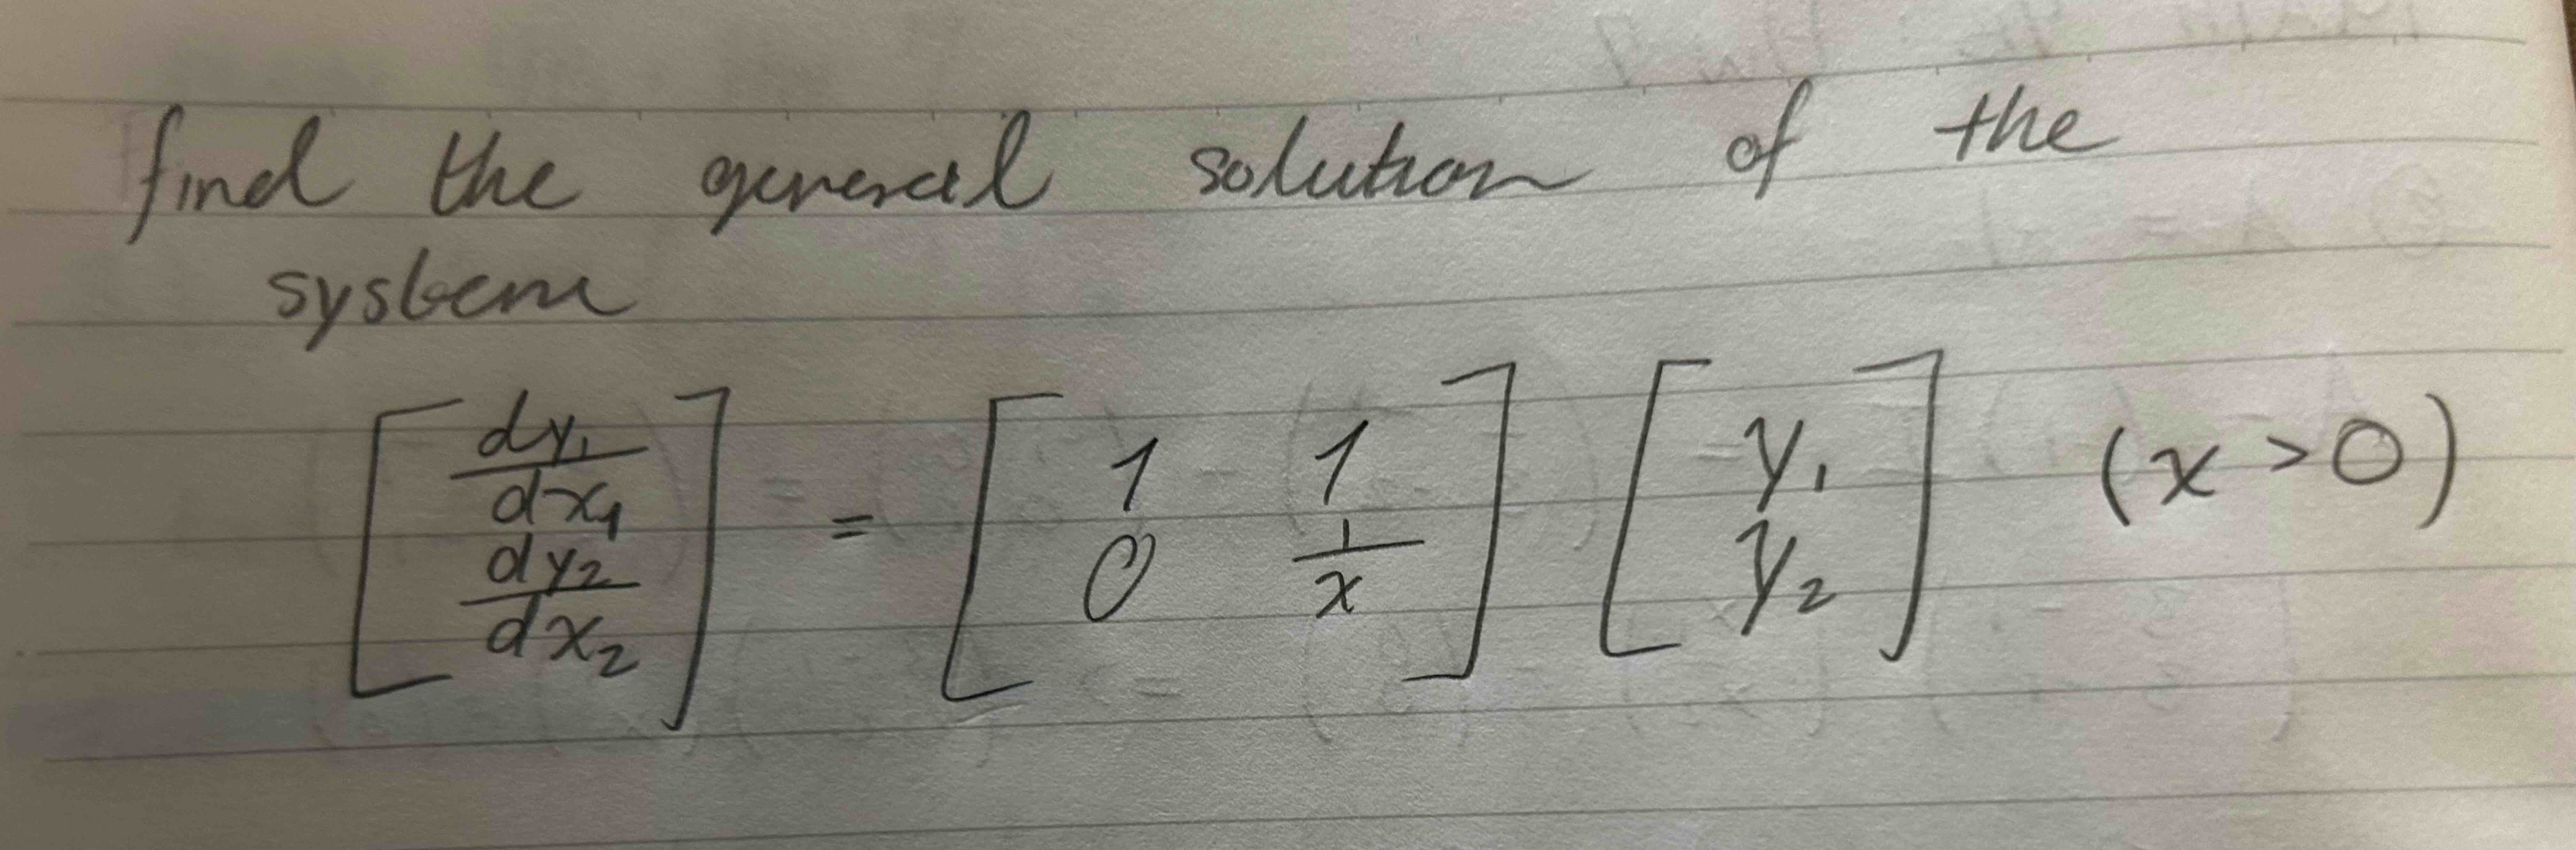 find the general solution of the
system
[dy₁/dx₁ dy₂/dx₂] = [1 1 0 1/x] [y₁ y₂] (x > 0)